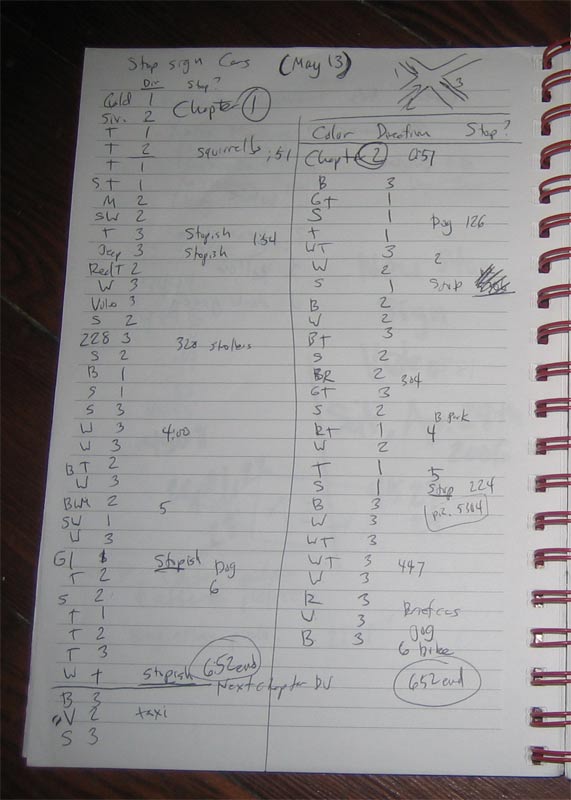 Stop sign Cars (May 13)
1 3 2
Dir Stop?
Gold 1 Chapter 1
Silv. 2
T 1
T 2 squirrells :51
T 1
S.T 1
M 2
SW 2
T 3 Stopish 1:34
Jeep 3 Stopish
Red T 2
W 3
Volvo 3
S 2
228 3 320 strollers
S 2
B 1
S 1
S 3
W 3 4:00
W 3
B T 2
W 3
BWM 2 5
SW 1
W 3
G1 Stopish Dog
T 2 6
S 2
T 1
T 2
T 3
W + stopish 6:52 end
Next Chapter DV
B 3
V 2 taxi
S 3
Color Direction Stop?
Chapter 2 0:51
B 3
GT 1
S 1 Dog 126
T 1
WT 3
W 2 2
S 1 Stop
B 2
W 2
BT 3
S 2
BR 2 304
GT 3
S 2 B Park
RT 1 4
W 2
T 1 5
S 1 Stop 224
B 3 p.2. 5304
W 3
W 3
WT 3 447
W 3
R 3 Briefcas
V 3 Dog
B 3 6 bike
652 end